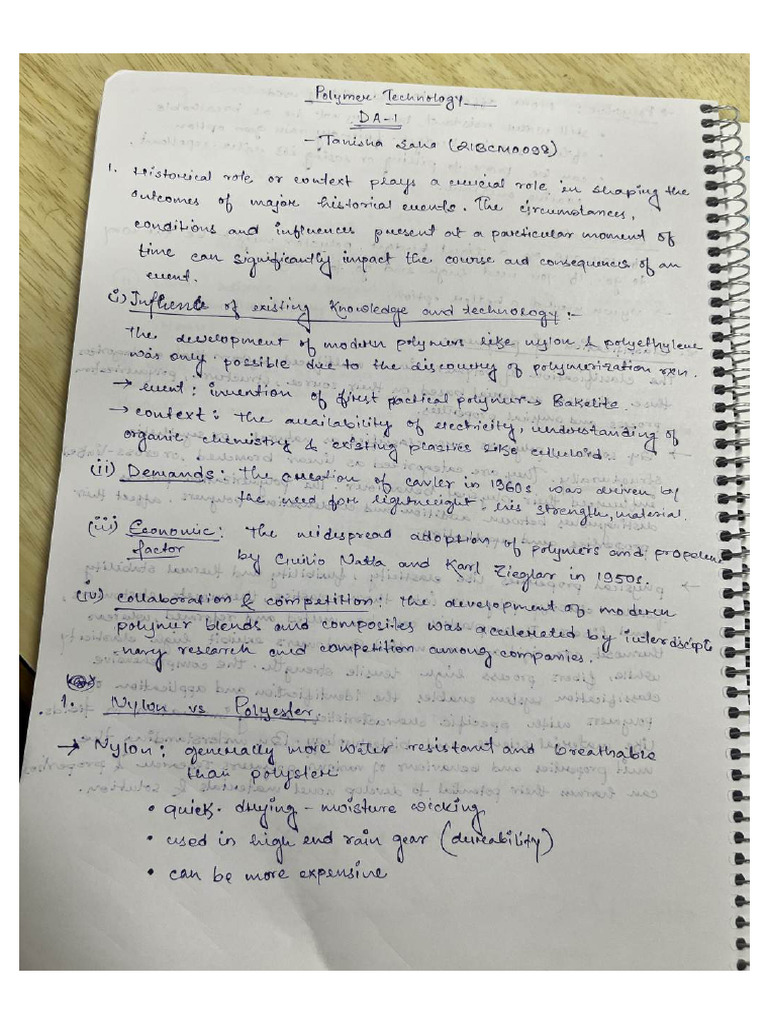 Polymer Technology
DA-1
- Tanisha Saha (21BCM0098)
1. Historical role or context plays a crucial role in shaping the
outcomes of major historial events. The circumstances,
conditions and influences present at a particular moment of
time can significantly impact the course and consequences of an
event.
(i) Influence of existing knowledge and technology :-
The development of modern polymers like nylon & polyethylene
was only possible due to the discovery of polymerization rxn.
→ event : invention of first pactical polymer → Bakelite.
→ context : The availability of electricity, understanding of
organic chemistry & existing plastics like celluloid.
(ii) Demands : The creation of in 1960s was driven by
the need for lightweight, strength, material.
(iii) Economic : The widespread adoption of polymers and
factor by Giulio Natta and Karl Zieglar in 1950s.
(iv) collaboration & competition : The development of modern
polymer blends and composites was accelerated by interdiscipli
-nary research and competition among companies.
1. Nylon vs Polyester.
→ Nylon : generally more water resistant and breathable
than polyster
• quick-drying - moisture wicking
• used in high end rain gear (durability)
• can be more expensive